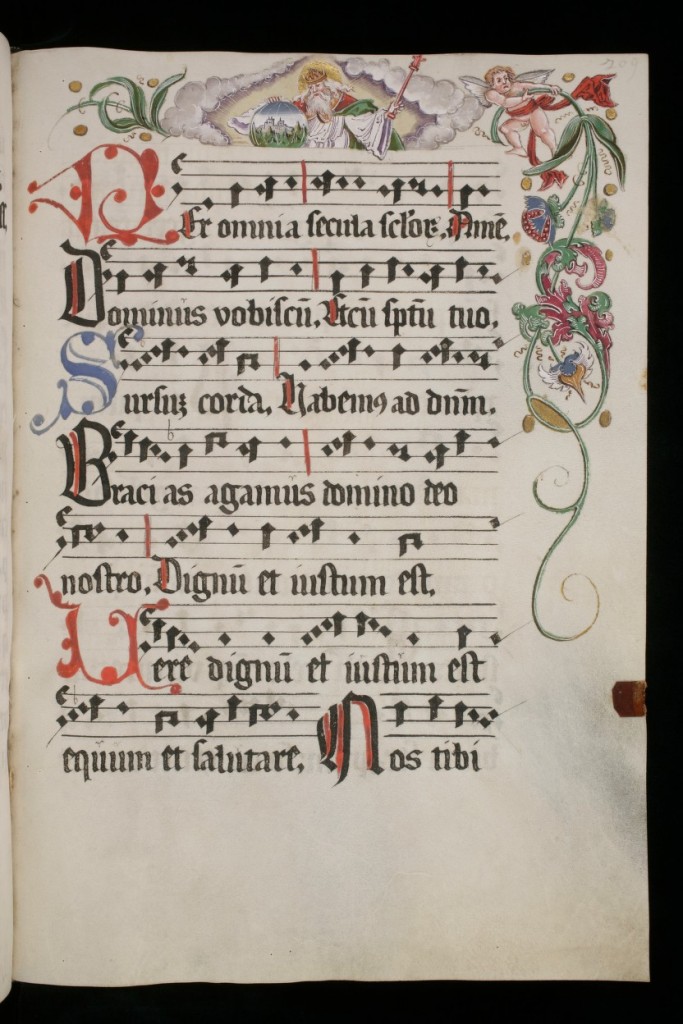 209
Per omnia secula sclor̄. Amē.
Dominus vobiscū. Et cū sp̄tū tuo.
Sursuʒ corda. Habemꝰ ad dn̄m.
Graci as agamus domino deo
nostro. Dignū et iustum est.
Uere dignū et iustum est
equum et salutare. Nos tibi